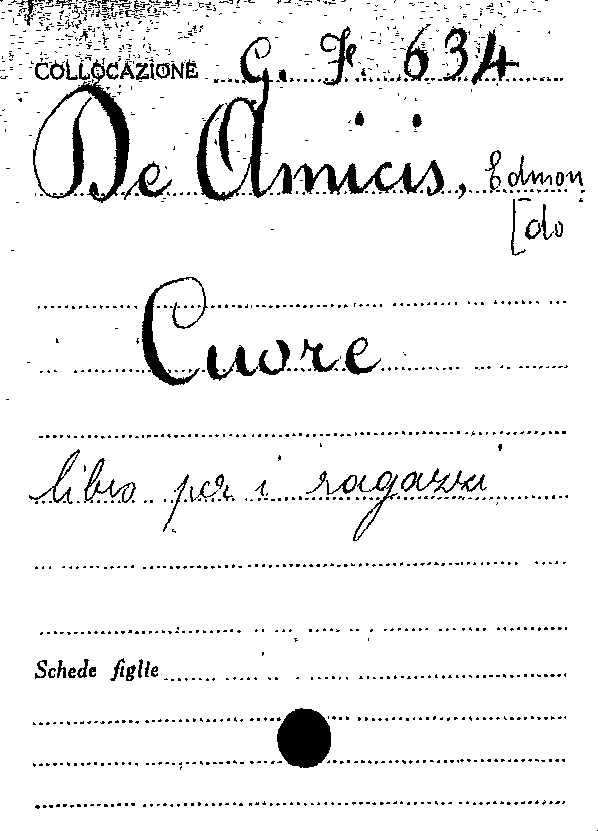 COLLOCAZIONE G. F. 634
De Amicis, Edmon
[do
Cuore
libro per i ragazzi
Schede figlie